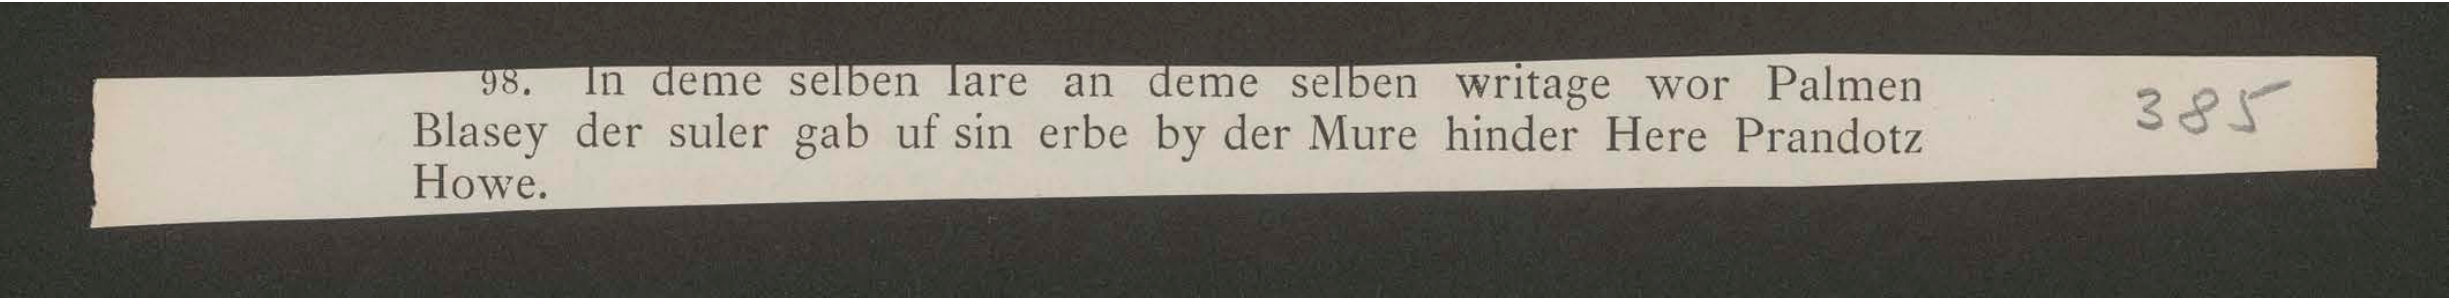 98. In deme selben Iare an deme selben writage wor Palmen
Blasey der suler gab uf sin erbe by der Mure hinder Here Prandotz
Howe.
385